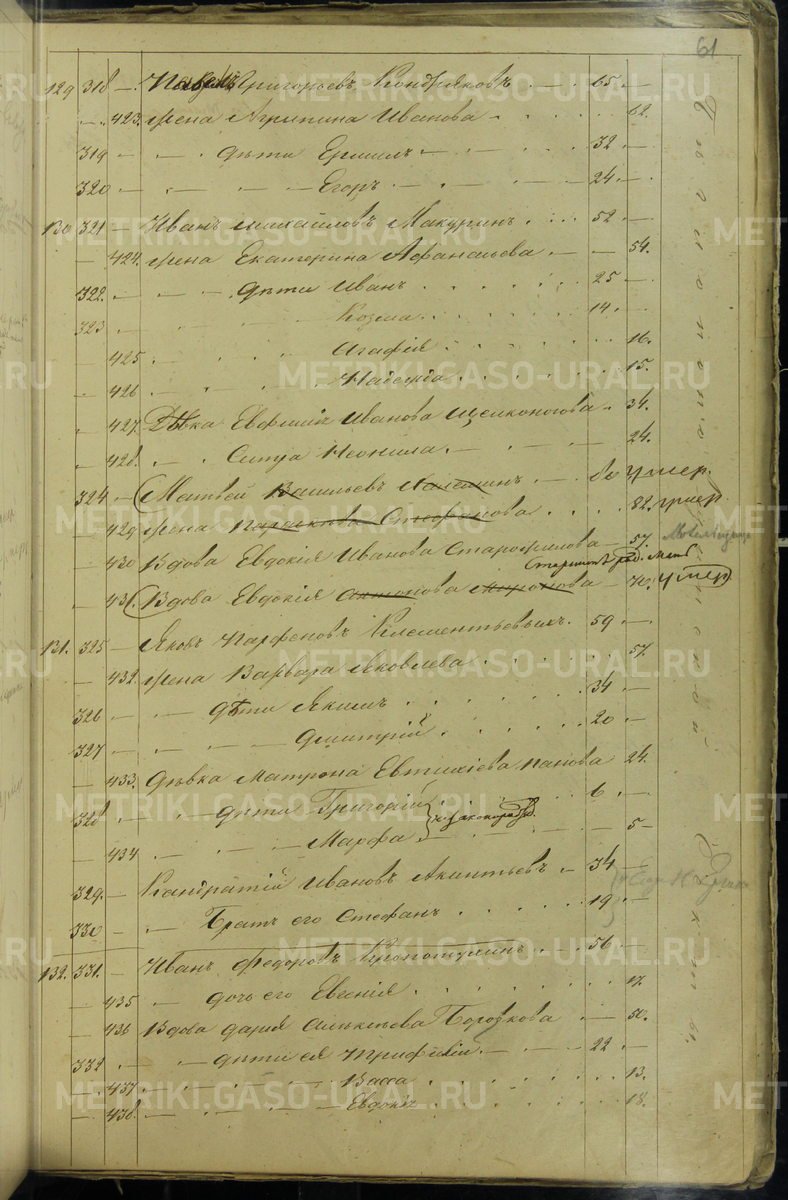 61
129 318 — Павелъ Григорьевъ Кондряковъ 65 —
423. жена Агрипина Иванова 62.
319 — дѣти Ермилъ 32 —
320 — Егоръ 24 —
130 321 — Иванъ Михайловъ Макуринъ 52 —
424. жена Екатерина Афанасьева 54.
322. — дѣти Иванъ 25 —
323 — Козма 14 —
425 Агафія 16.
426 Надежда 15.
427. Дѣвка Евфимія Иванова Щелконогова 34.
428. Сестра Неонила 24.
324 — Матвей Васильевъ 80 умер.
429 жена Параскева Стефанова 82. умер
430 Вдова Евдокія Иванова Старожилова 57.
431. Вдова Евдокія 70. умер
131. 325 — Яковъ Парфеновъ Клементьевыхъ. 59 —
432. жена Варвара Яковлева 57.
326 — дѣти Якимъ 34 —
327 — Дмитрій 20 —
433. Дѣвка Матрона Евтихіева Панова 24.
328 — дѣти Григорій 6 —
434 Марфа 5 —
329. — Кандратій Ивановъ Акинтьевъ 34 —
330 — Братъ его Стефанъ 19 —
132. 331. — Иванъ Федоровъ Кропотухинъ 56 —
435 — дочь его Евгенія 17.
436 Вдова Дарія Борозкова 50.
332 — дѣти ея Трифилій 22 —
437 Васса 13.
438. Евдокія 18.
METRIKI.GASO-URAL.RU